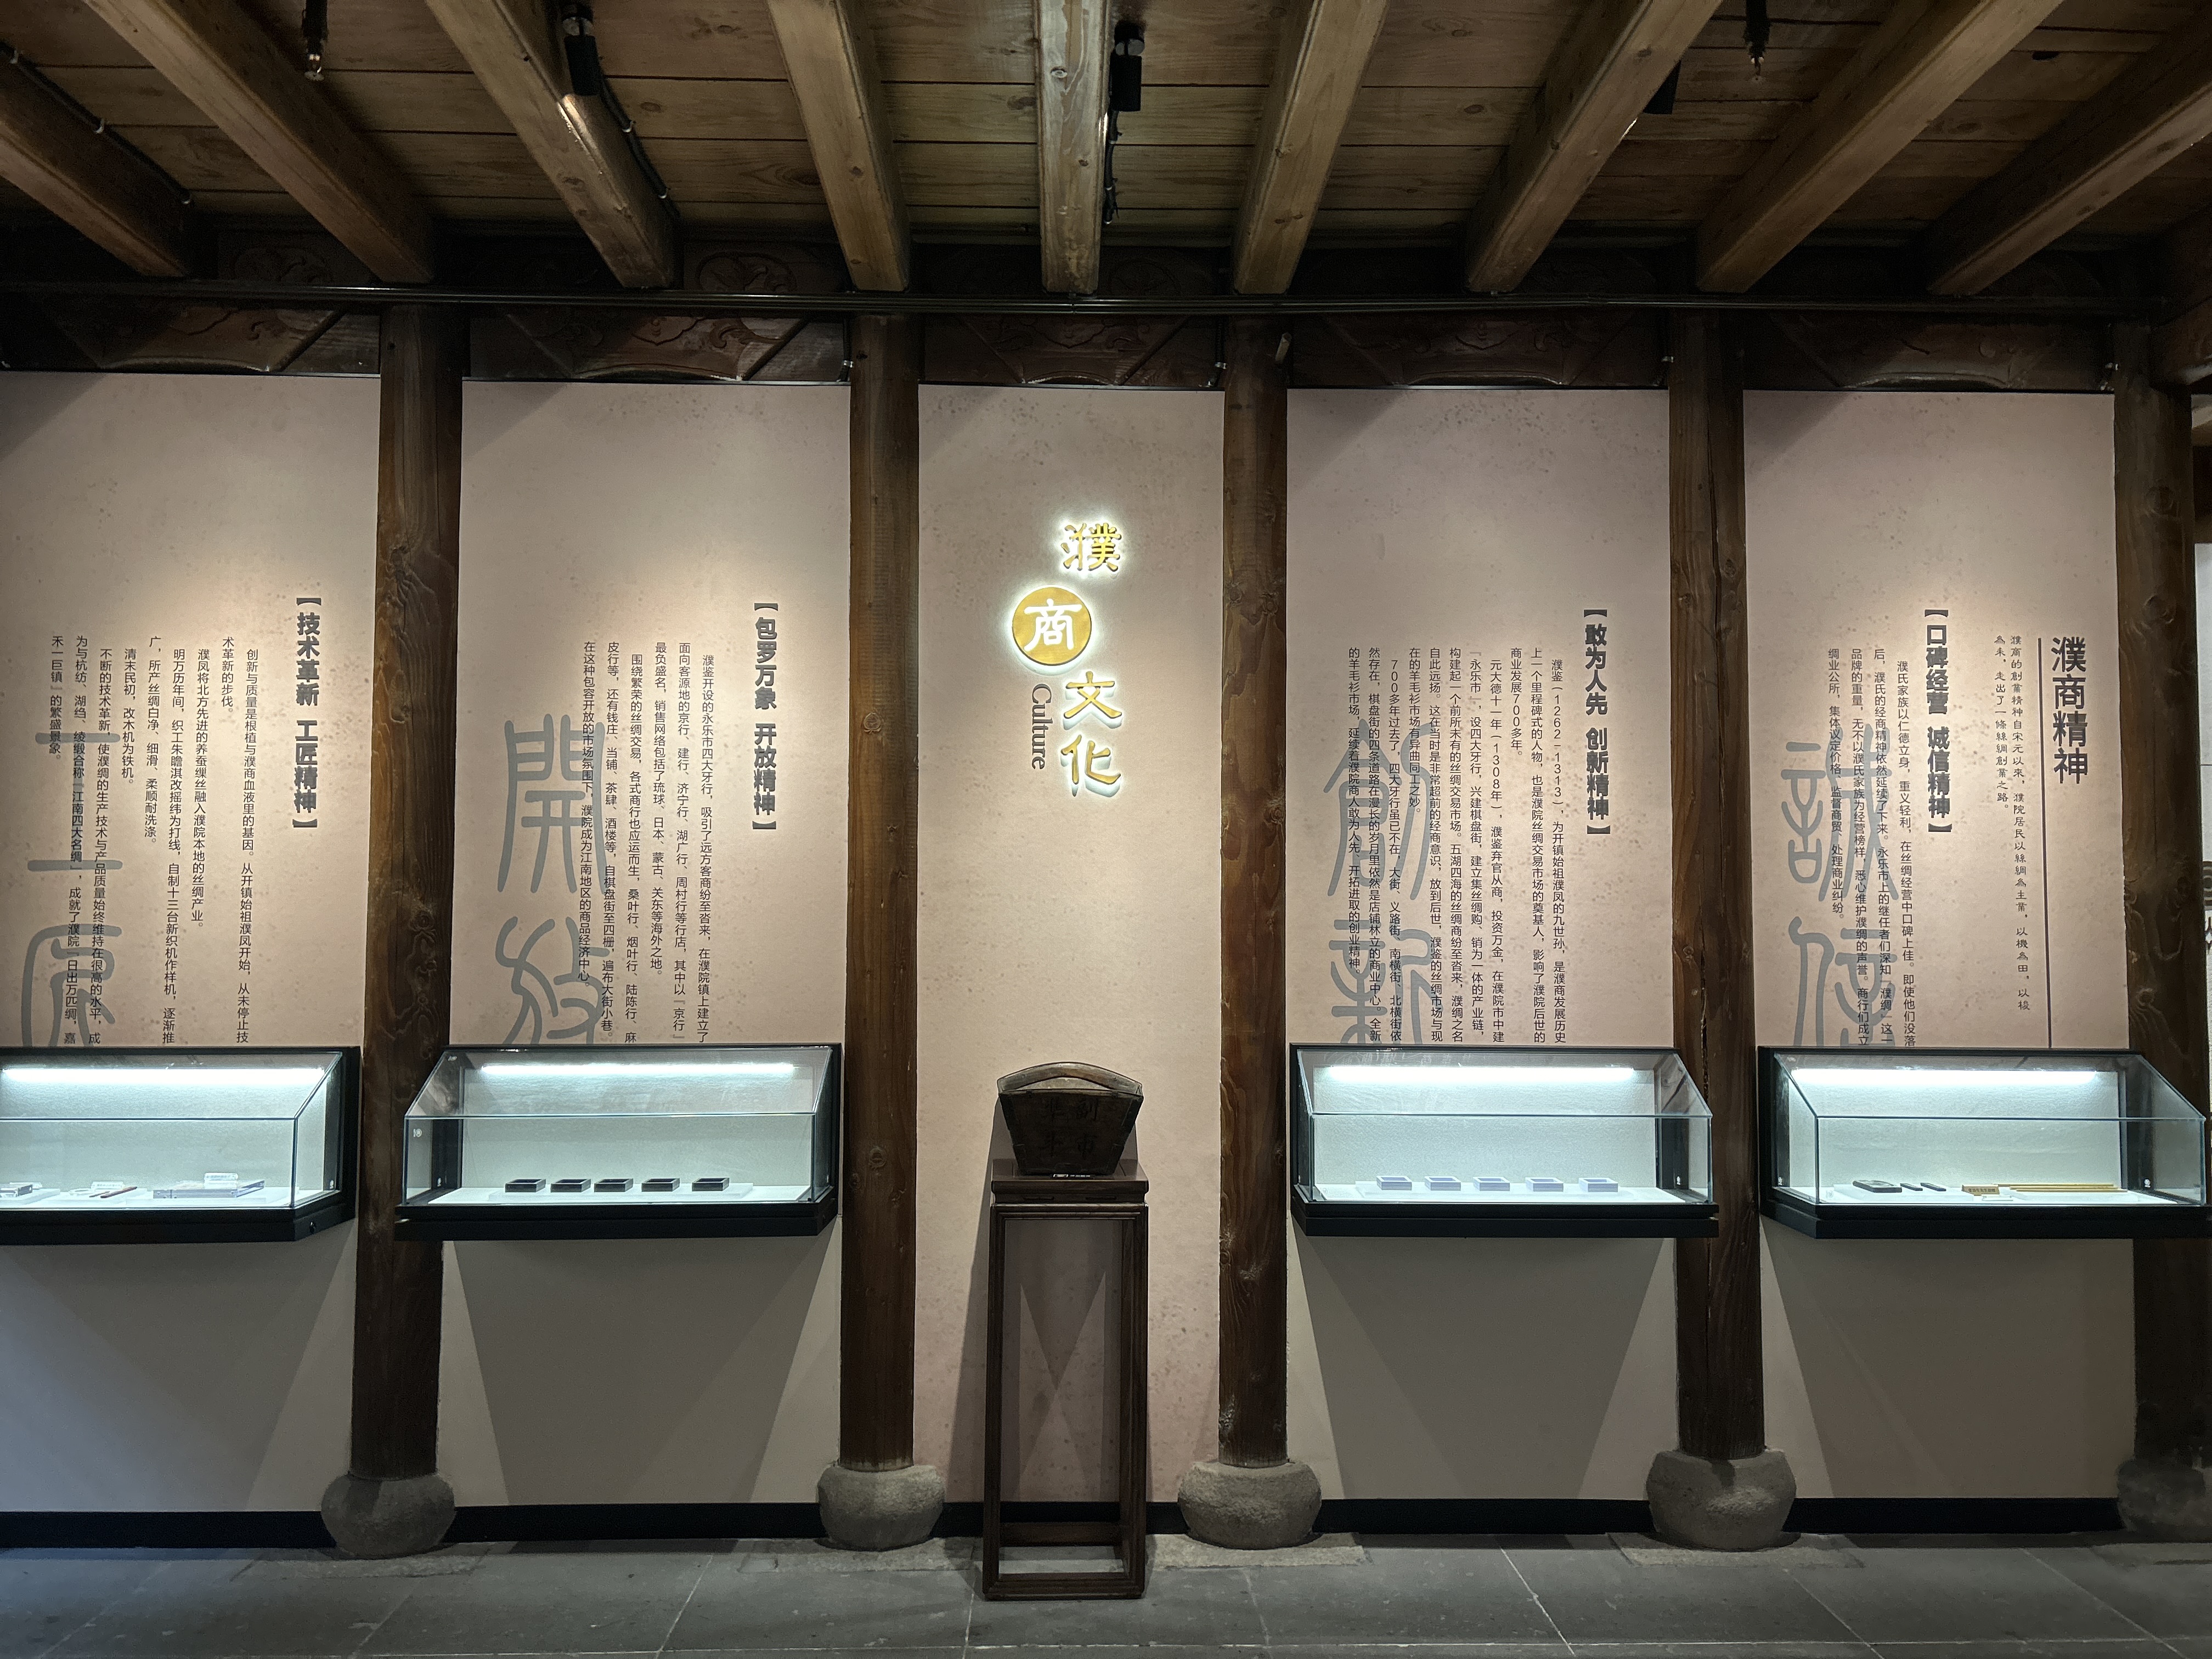 濮商精神
濮商的創業精神自宋元以來，濮院居民以絲綢為主業，以機為田，以梭
為耒，走出了一條絲綢創業之路。
【口碑经营 诚信精神】
濮氏家族以仁德立身，重义轻利，在丝绸经营中口碑上佳。即使他们没落
后，濮氏的经商精神依然延续了下来。永乐市上的继任者们深知“濮绸”这一
品牌的重量，无不以濮氏家族为经营榜样，悉心维护濮绸的声誉。商行们成立
绸业公所，集体议定价格、监督商贸、处理商业纠纷。
誠信
【敢为人先 创新精神】
濮鉴（1262-1313），为开镇始祖濮凤的九世孙，是濮商发展历史
上一个里程碑式的人物，也是濮院丝绸交易市场的奠基人，影响了濮院后世的
商业发展700多年。
元大德十一年（1308年），濮鉴弃官从商，投资万金，在濮院市中建
『永乐市』，设四大牙行，兴建棋盘街，建立集丝绸购、销为一体的产业链，
构建起一个前所未有的丝绸交易市场。五湖四海的丝绸商纷至沓来，濮绸之名
自此远扬。这在当时是非常超前的经商意识，放到后世，濮鉴的丝绸市场与现
在的羊毛衫市场有异曲同工之妙。
700多年过去了，四大牙行虽已不在，大街、义路街、南横街、北横街依
然存在，棋盘街的四条道路在漫长的岁月里依然是店铺林立的商业中心，全新
的羊毛衫市场，延续着濮院商人敢为人先、开拓进取的创业精神。
創新
濮商文化
Culture
【包罗万象 开放精神】
濮鉴开设的永乐市四大牙行，吸引了远方客商纷至沓来，在濮院镇上建立了
面向客源地的京行、建行、济宁行、湖广行、周村行等行店，其中以『京行』
最负盛名，销售网络包括了琉球、日本、蒙古、关东等海外之地。
围绕繁荣的丝绸交易，各式商行也应运而生，桑叶行、烟叶行、陆陈行、麻
皮行等，还有钱庄、当铺、茶肆、酒楼等，自棋盘街至四栅，遍布大街小巷。
在这种包容开放的市场氛围下，濮院成为江南地区的商品经济中心。
開放
【技术革新 工匠精神】
创新与质量是根植与濮商血液里的基因。从开镇始祖濮凤开始，从未停止技
术革新的步伐。
濮凤将北方先进的养蚕缫丝融入濮院本地的丝绸产业。
明万历年间，织工朱瞻淇改摇纬为打线，自制十三台新织机作样机，逐渐推
广，所产丝绸白净、细滑、柔顺耐洗涤。
清末民初，改木机为铁机。
不断的技术革新，使濮绸的生产技术与产品质量始终维持在很高的水平，成
为与杭纺、湖绉、绫缎合称『江南四大名绸』，成就了濮院『日出万匹绸，嘉
禾一巨镇』的繁盛景象。
工匠